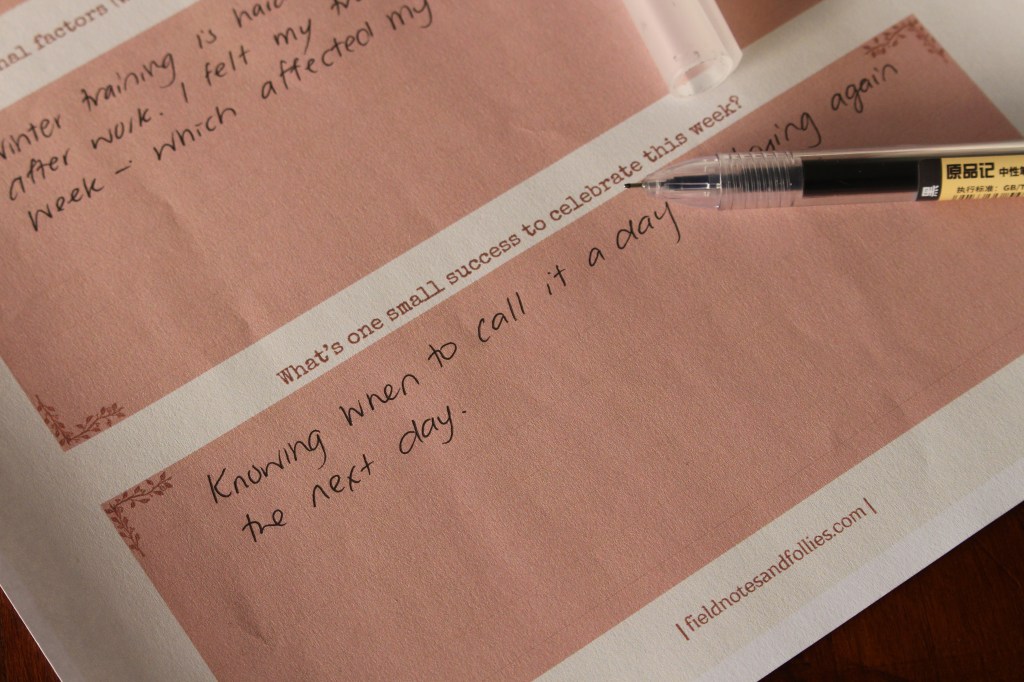 nal factors (
winter training is hard
after work. I felt my
week – which affected my
What's one small success to celebrate this week?
Knowing when to call it a day again
the next day.
|fieldnotesandfollies.com|
原品记 中性笔
执行标准: GB/T